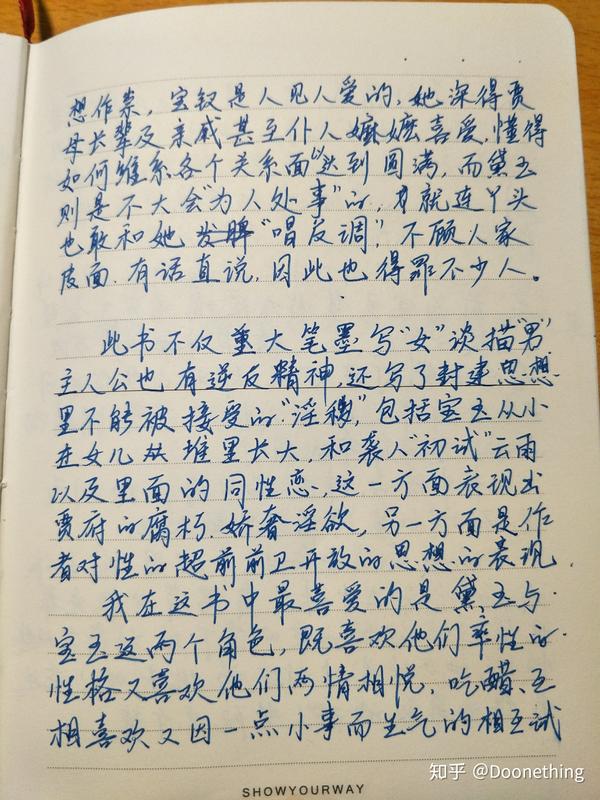 想作祟，宝钗是人见人爱的，她深得贾
母长辈及亲戚甚至仆人嬷嬷喜爱，懂得
如何维系各个关系面面达到圆满，而黛玉
则是不大会“为人处事”的，就连丫头
也敢和她“唱反调”，不顾人家
皮面，有话直说，因此也得罪不少人。
此书不仅重大笔墨写“女”淡描“男”
主人公也有逆反精神，还写了封建思想
里不能被接受的“淫秽”，包括宝玉从小
在女儿堆里长大，和袭人“初试”云雨
以及里面的同性恋，这一方面表现出
贾府的腐朽，娇奢淫欲，另一方面是作
者对性的超前前卫开放的思想的表现
我在这书中最喜爱的是黛玉与
宝玉这两个角色，既喜欢他们率性的
性格又喜欢他们两情相悦，吃醋、互
相喜欢又因一点小事而生气的相互试
SHOWYOURWAY
知乎 @Doonething